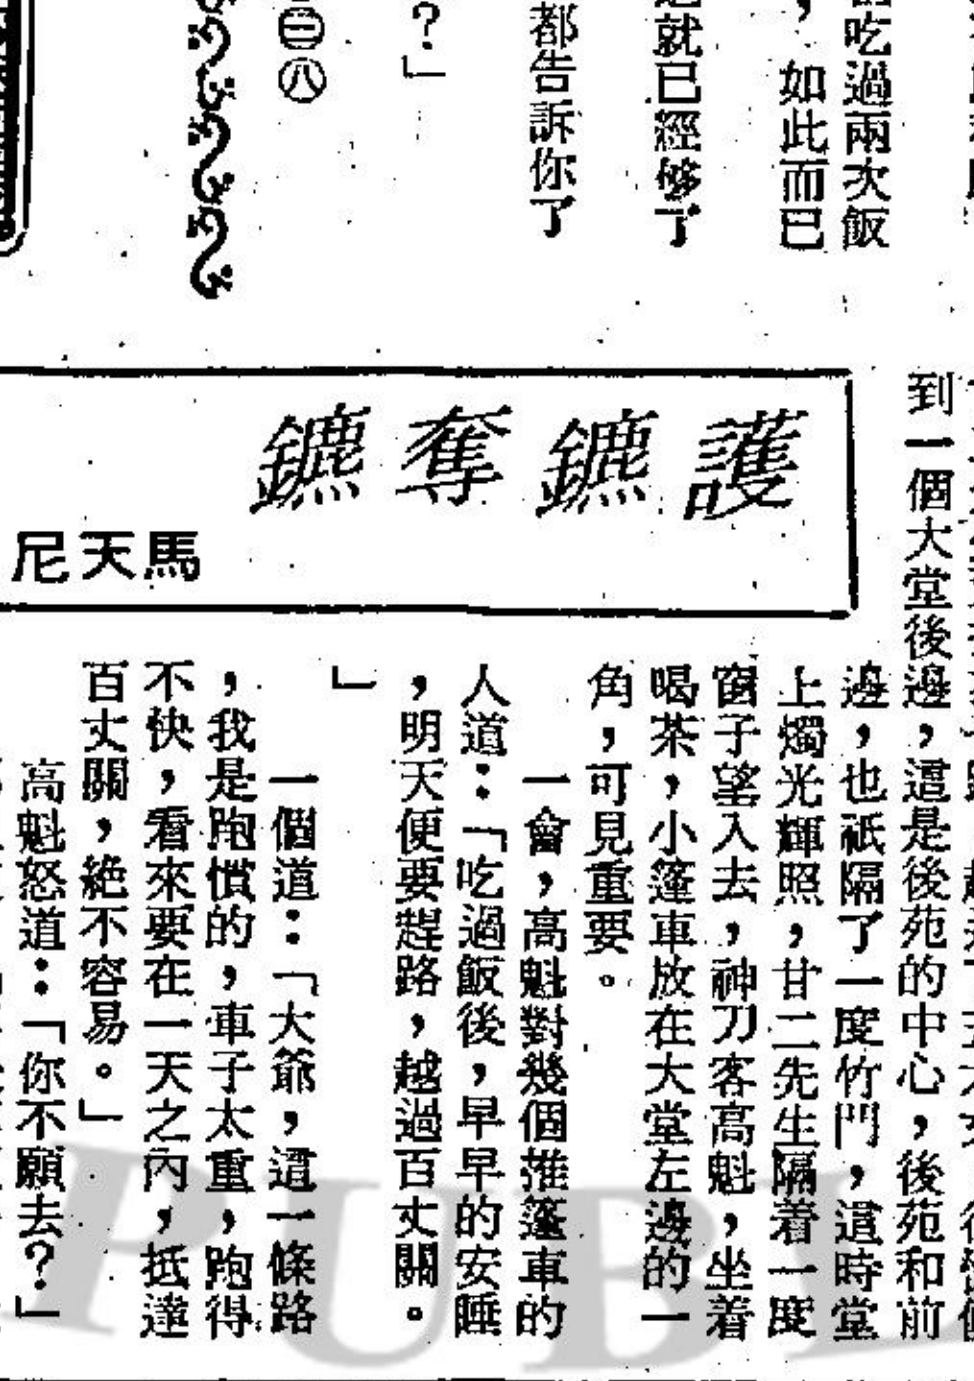 吃過兩次飯
，如此而已
就已經够了
都告訴你了
？」
㊁八
護鑣奪鑣
馬天尼
到一個大堂後邊，這是後苑的中心，後苑和前
邊，也祇隔了一度竹門，這時堂
上燭光輝照，甘二先生隔着一度
窗子望入去，神刀客高魁，坐着
喝茶，小篷車放在大堂左邊的一
角，可見重要。
一會，高魁對幾個推篷車的
人道：「吃過飯後，早早的安睡
，明天便要趕路，越過百丈關。
」
一個道：「大爺，這一條路
，我是跑慣的，車子太重，跑得
不快，看來要在一天之內，抵達
百丈關，絕不容易。」
高魁怒道：「你不願去？」
PUBL